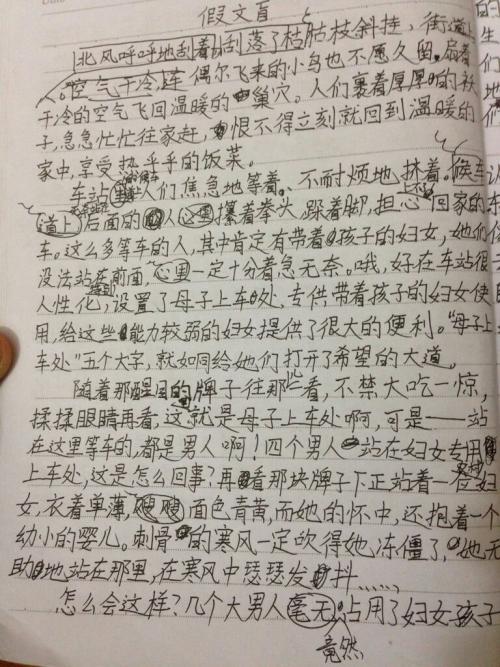 假文盲
北风呼呼地刮着,刮落了枯枯枝斜挂,街道上
。空气干冷,连偶尔飞来的小鸟也不愿久留,扇着
干冷的空气飞回温暖的巢穴。人们裹着厚厚的袄
子,急急忙忙往家赶,恨不得立刻就回到温暖的
家中,享受热乎乎的饭菜。
车站人们焦急地等着。不耐烦地挤着。候车
道上后面的人心里攥着拳头,跺着脚,担心回家的
车。这么多等车的人,其中肯定有带着孩子的妇女,她们
没法站在前面,心里一定十分着急无奈。哦,好在车站很
人性化,设置了母子上车处,专供带着孩子的妇女使
用,给这些能力较弱的妇女提供了很大的便利。“母子上
车处”五个大字,就如同给她们打开了希望的大道。
随着那醒目的牌子往那些看,不禁大吃一惊,
揉揉眼睛再看,这就是母子上车处啊,可是——站
在这里等车的,都是男人啊!四个男人站在妇女专用
上车处,这是怎么回事?再看那块牌子下正站着一位妇
女,衣着单薄,嗖嗖面色青黄,而她的怀中,还抱着一个
幼小的婴儿。刺骨的寒风一定吹得她冻僵了,她无
助地站在那里,在寒风中瑟瑟发抖……
怎么会这样?几个大男人毫无占用了妇女孩子
竟然